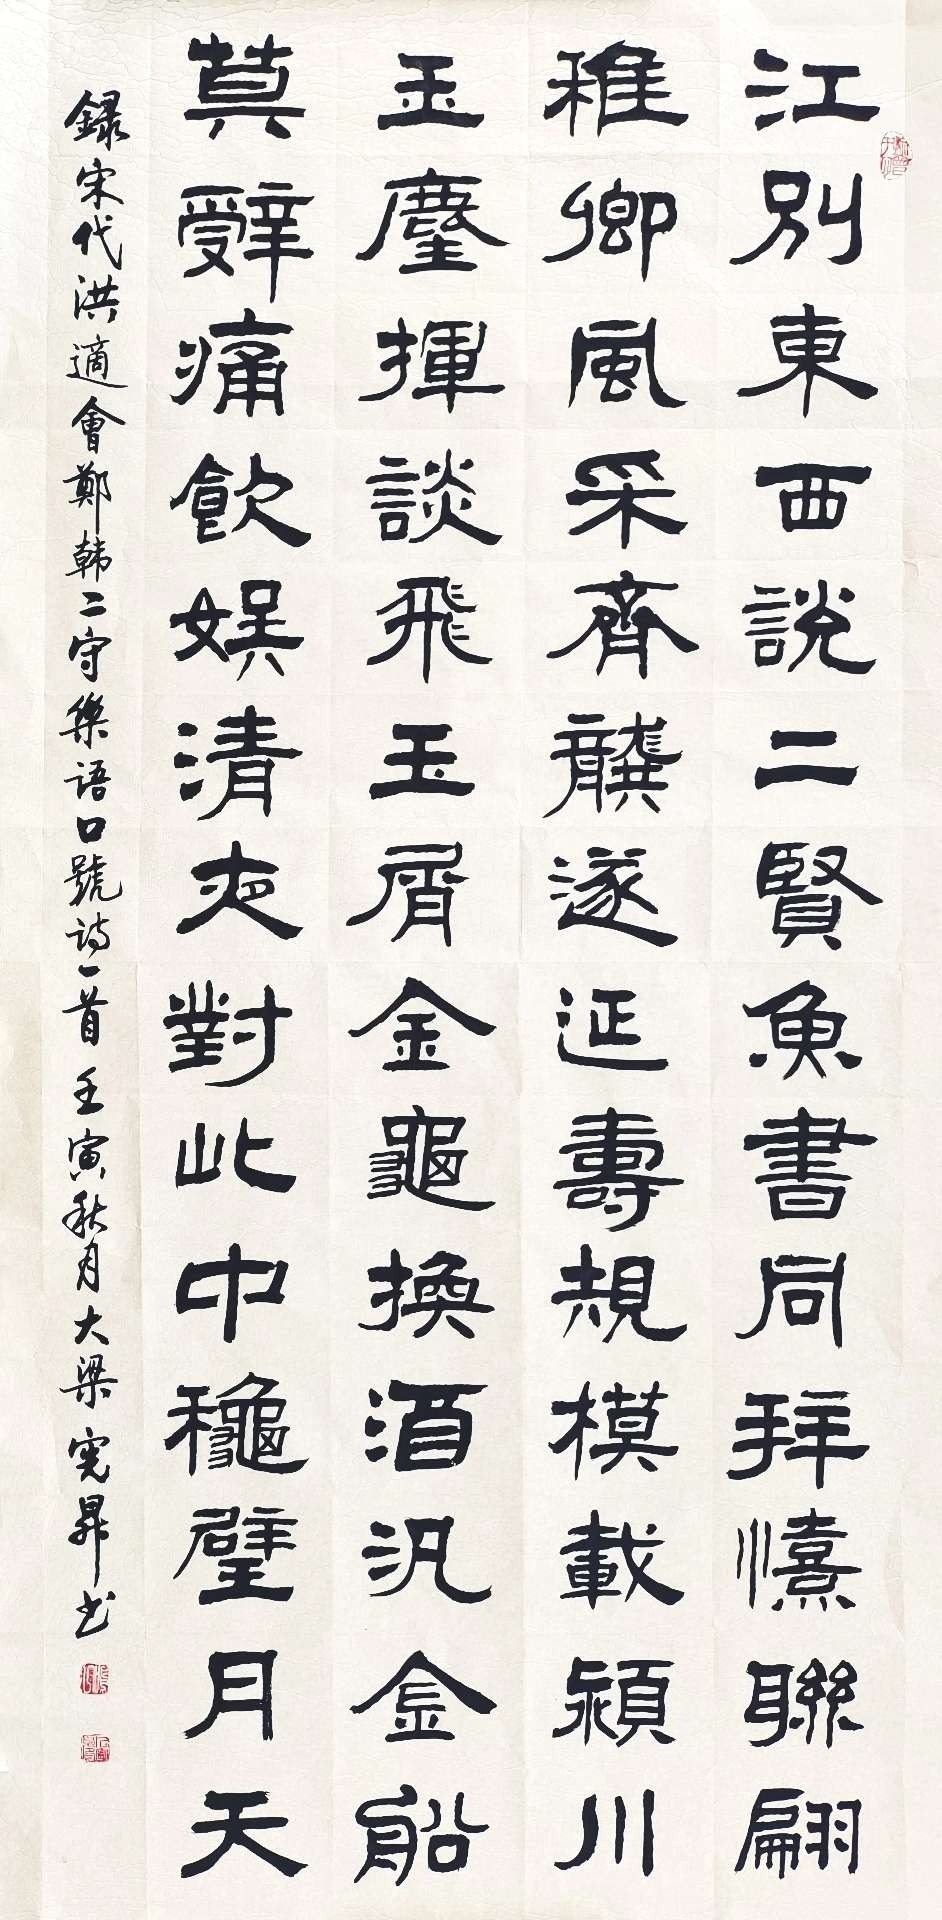 江別東西説二賢魚書同拜憙聯翩
稚卿風采齊龔遂延壽規模載潁川
玉麈揮談飛玉屑金龜換酒汎金船
莫辭痛飲娱清夜對此中穐璧月天
録宋代洪適會鄭韩二守樂語口號诗一首 壬寅秋月大梁宪昇书